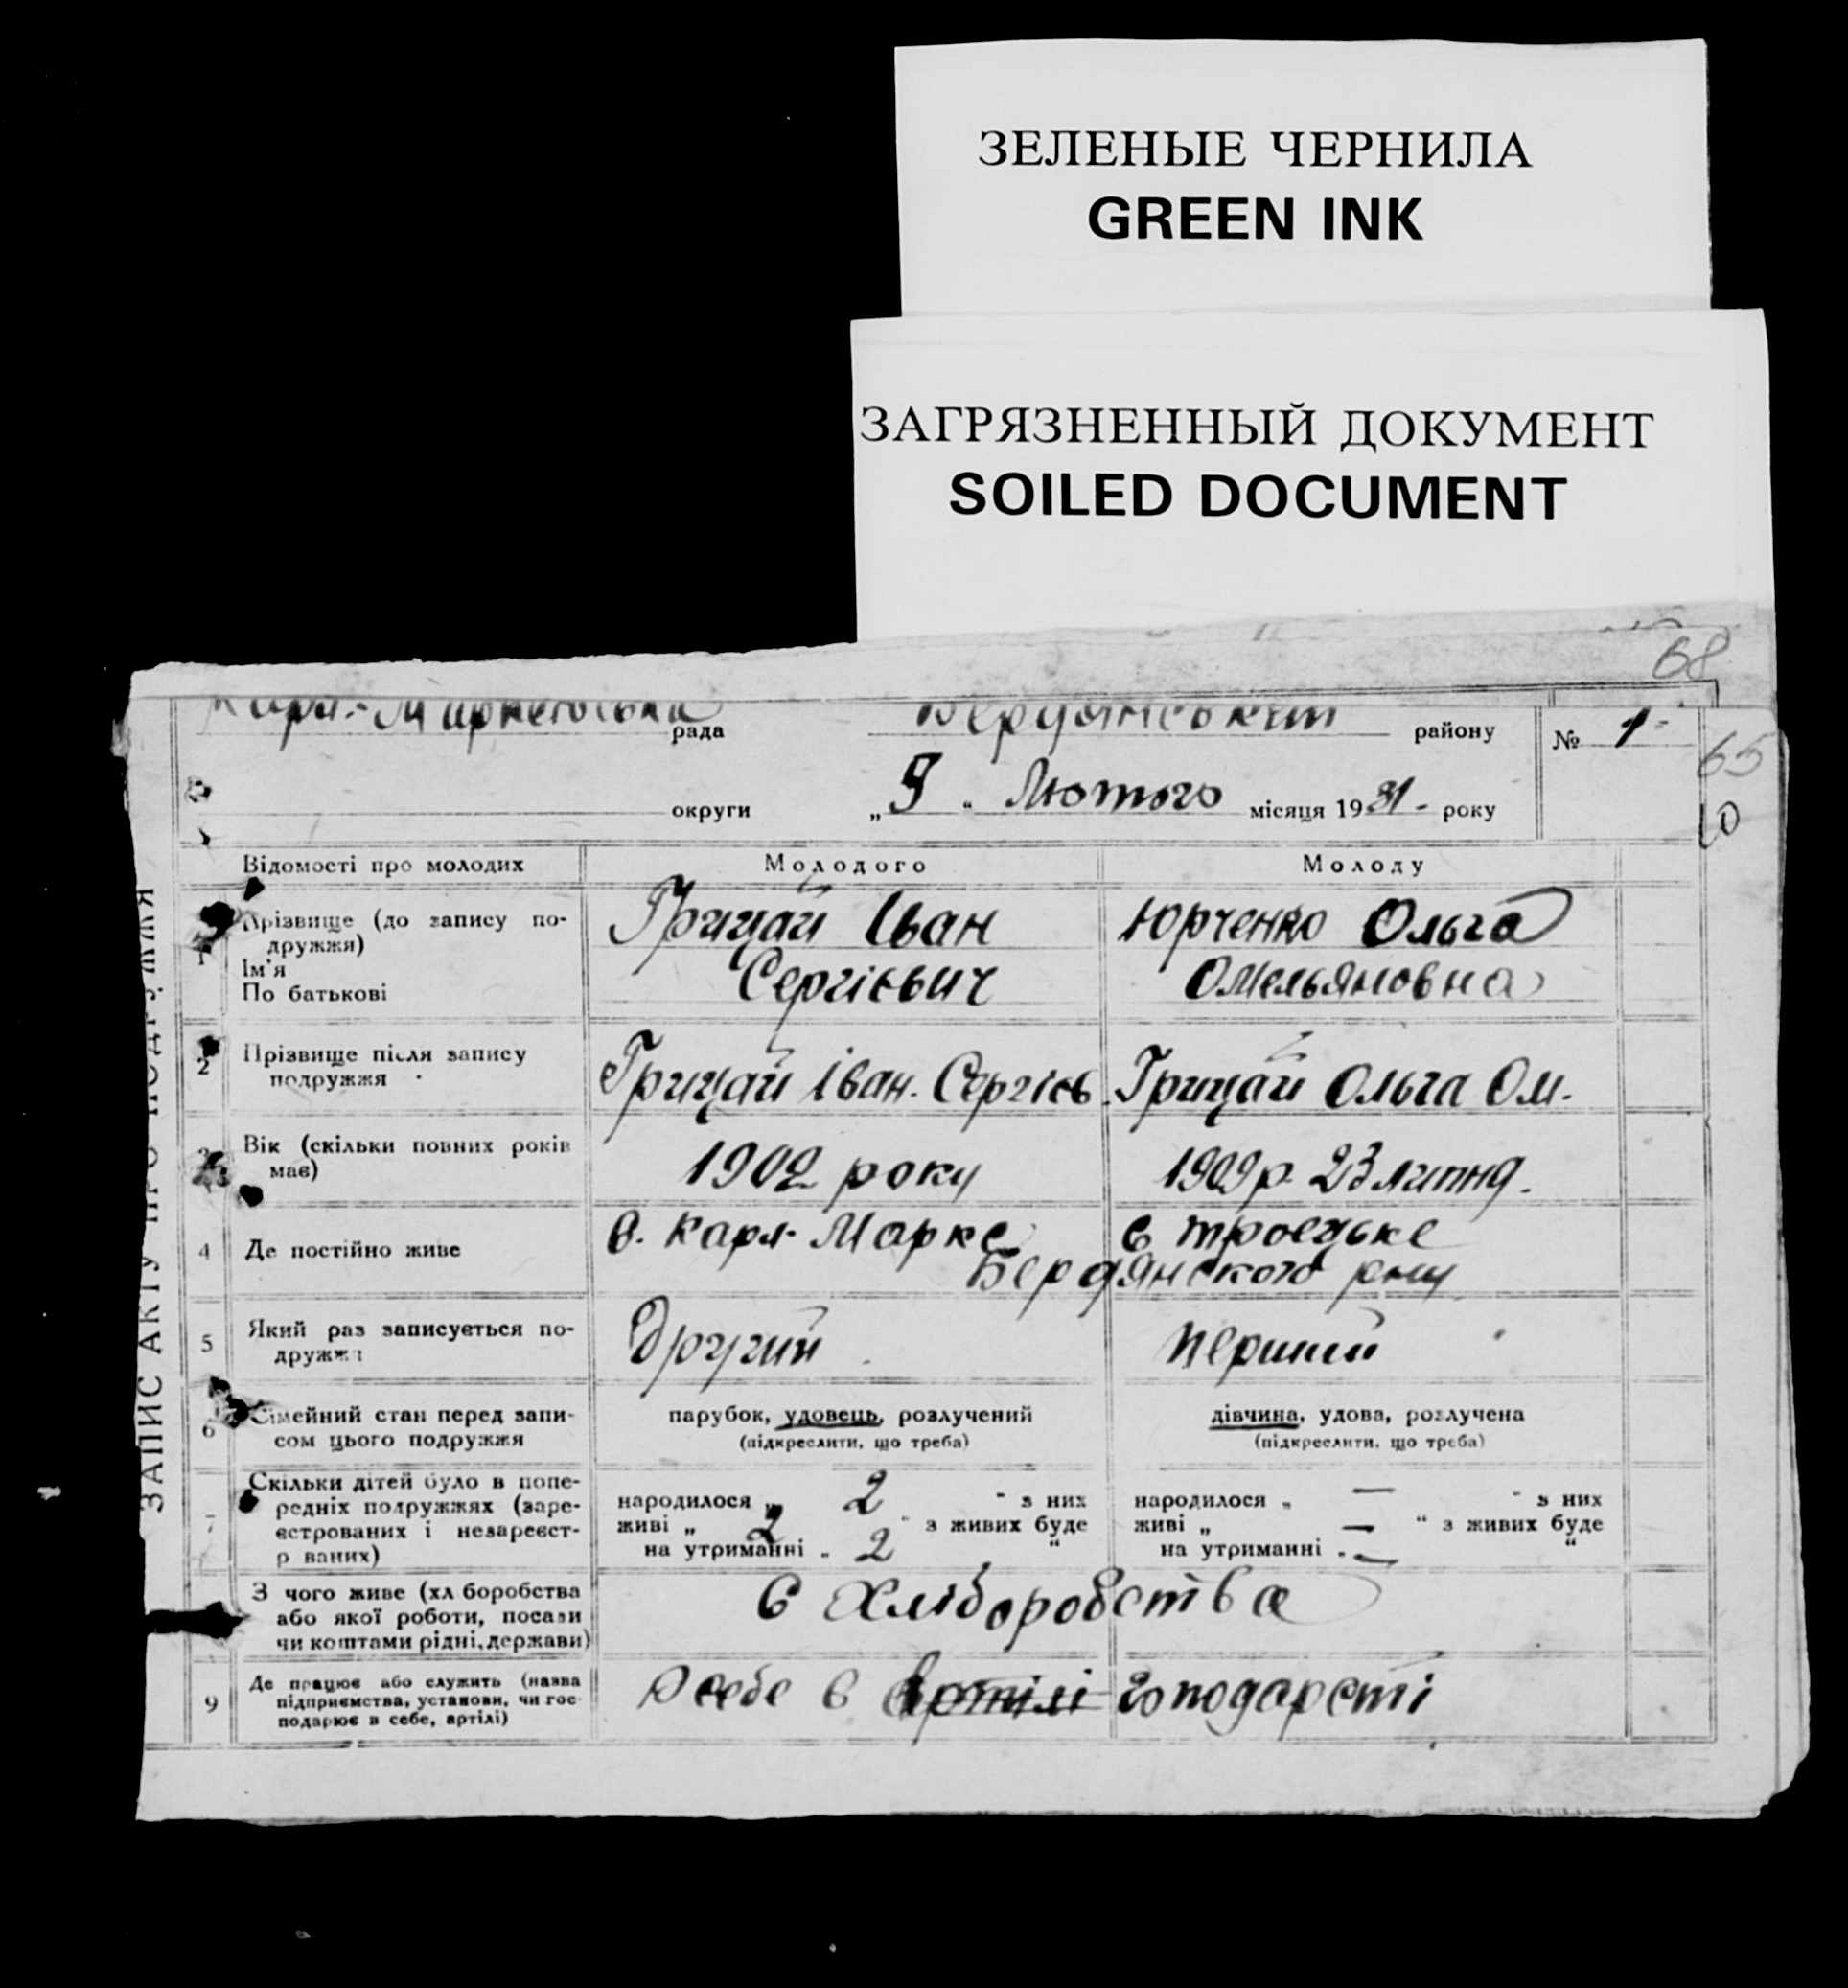 ЗЕЛЕНЫЕ ЧЕРНИЛА
GREEN INK
ЗАГРЯЗНЕННЫЙ ДОКУМЕНТ
SOILED DOCUMENT
68
рада
району
№ 1-
65
округи
„ 9 " Лютого місяця 1931- року
10
ЗАПИС АКТУ ПРО ПОДРУЖЖЯ
Відомості про молодих
Молодого
Молоду
1
Прізвище (до запису по-
дружжя)
Ім'я
По батькові
Грицай Іван
Сергієвич
Юрченко Ольга
Омельяновна
2
Прізвище після запису
подружжя
Грицай Іван. Сергієв.
Грицай Ольга Ом.
Вік (скільки повних років
має)
1902 року
1909 р. 23 липня.
4
Де постійно живе
с. Карл-Маркс
с Троецьке
Бердянского
5
Який раз записується по-
дружжя
Другий
Перший
6
Сімейний стан перед запи-
сом цього подружжя
парубок, удовець, розлучений
(підкреслити, що треба)
дівчина, удова, розлучена
(підкреслити, що треба)
7
Скільки дітей було в попе-
редніх подружжях (заре-
єстрованих і незареєст-
р ваних)
народилося „ 2 " з них
живі „ 2 " з живих буде
на утриманні „ 2 "
народилося „ — " з них
живі „ — " з живих буде
на утриманні „ — "
З чого живе (хл боробства
або якої роботи, посади
чи коштами рідні, держави)
с Хліборобства
9
Де працює або служить (назва
підприємства, установи, чи гос-
подарює в себе, артілі)
себе в артілі господарсті